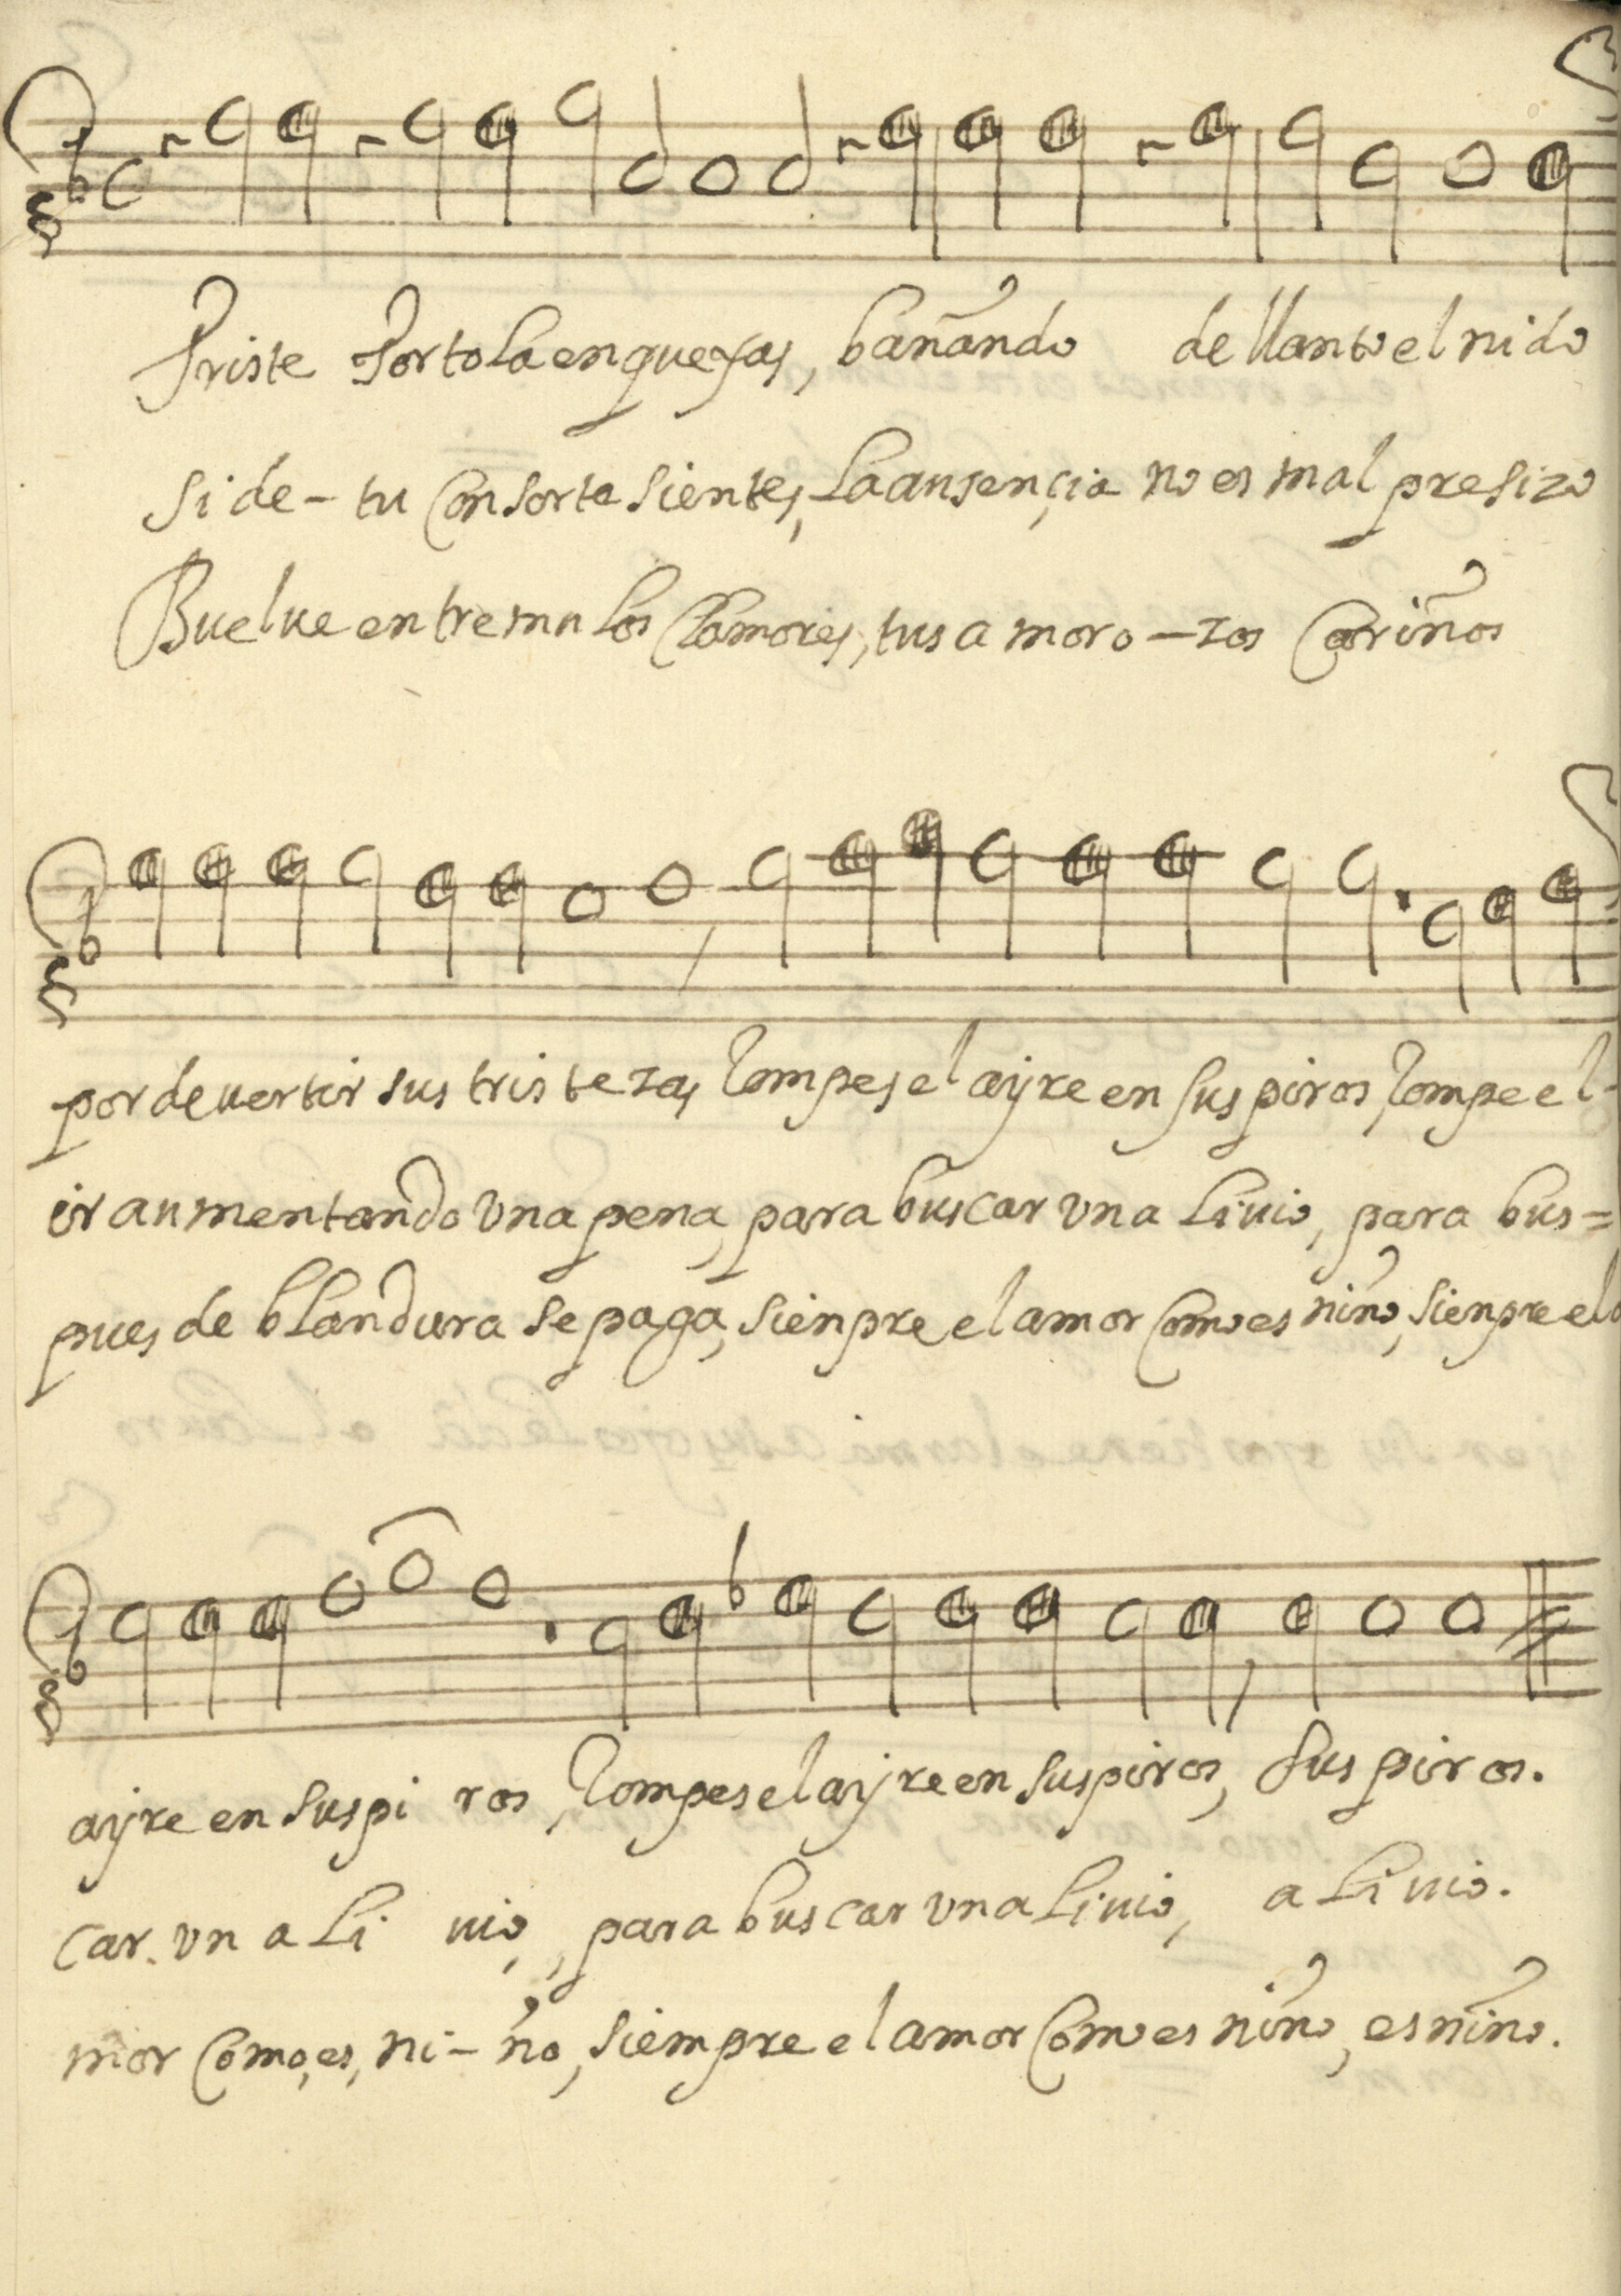 Triste Tortola en quexas, bañando de llanto el nido
Si de - tu Consorte sientes, La ausençia no es mal presizo
Buelue entre mu los Clamores, tus a moro - zos Cariños
por deuertir sus tris te zas, Rompes el ayre en suspiros, Rompe el -
ir aumentando vna pena, para buscar vn a Liuio, para bus =
pues de blandura se paga, sienpre el amor Como es niño, sienpre el a
ayre en suspi ros, Rompes el ayre en suspiros, suspiros.
car. vn a Li uio, para buscar vn a Liuio, a Li uio.
mor Como, es, ni - ño, siempre el amor Como es niño, es niño.